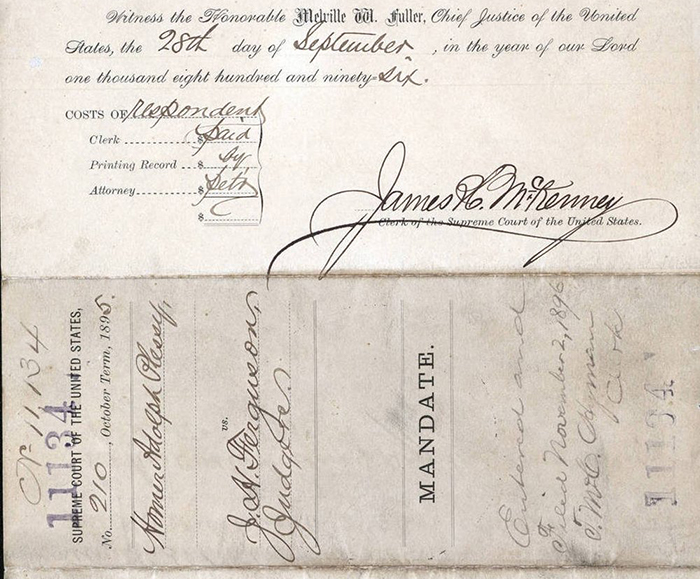 Witness the Honorable Melville W. Fuller, Chief Justice of the United
States, the 28th day of September, in the year of our Lord
one thousand eight hundred and ninety-six.
COSTS OF respondent
Clerk $ paid
Printing Record $ by
Attorney $ petr
$
James H. McKenney
Clerk of the Supreme Court of the United States.
No 11134
11134
SUPREME COURT OF THE UNITED STATES,
No. 210, October Term, 1895.
Homer Adolph Plessy,
vs.
J. H. Ferguson,
Judge &c.
MANDATE.
Entered and
Filed November 2, 1896
Clerk
11134